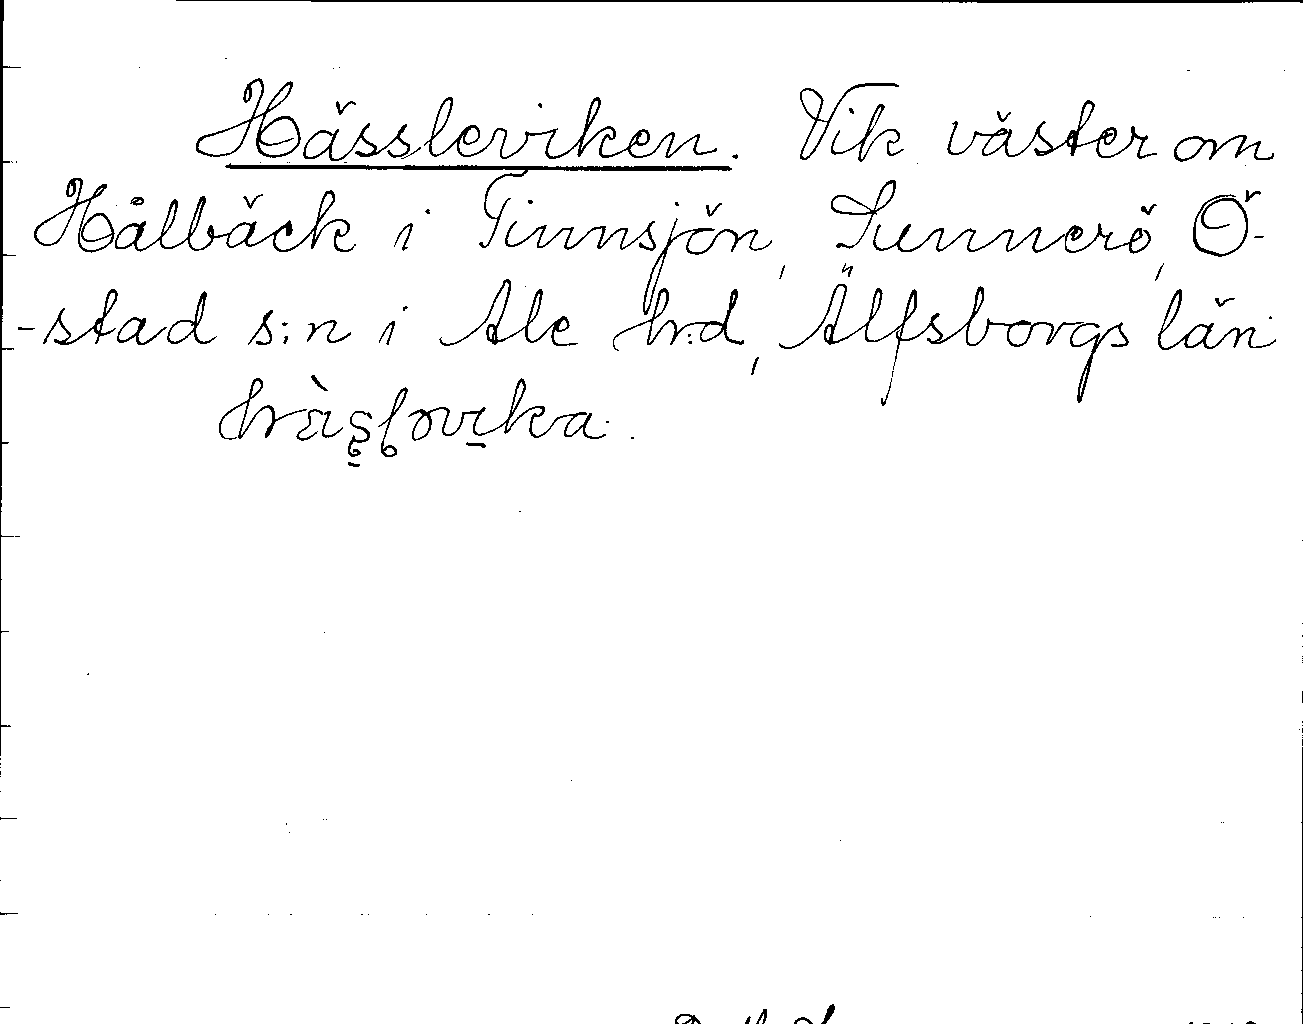 Hässleviken. Vik väster om
Hålbäck i Tinnsjön, Sunnerö, Ö-
-stad s:n i Ale hrd, Älfsborgs län